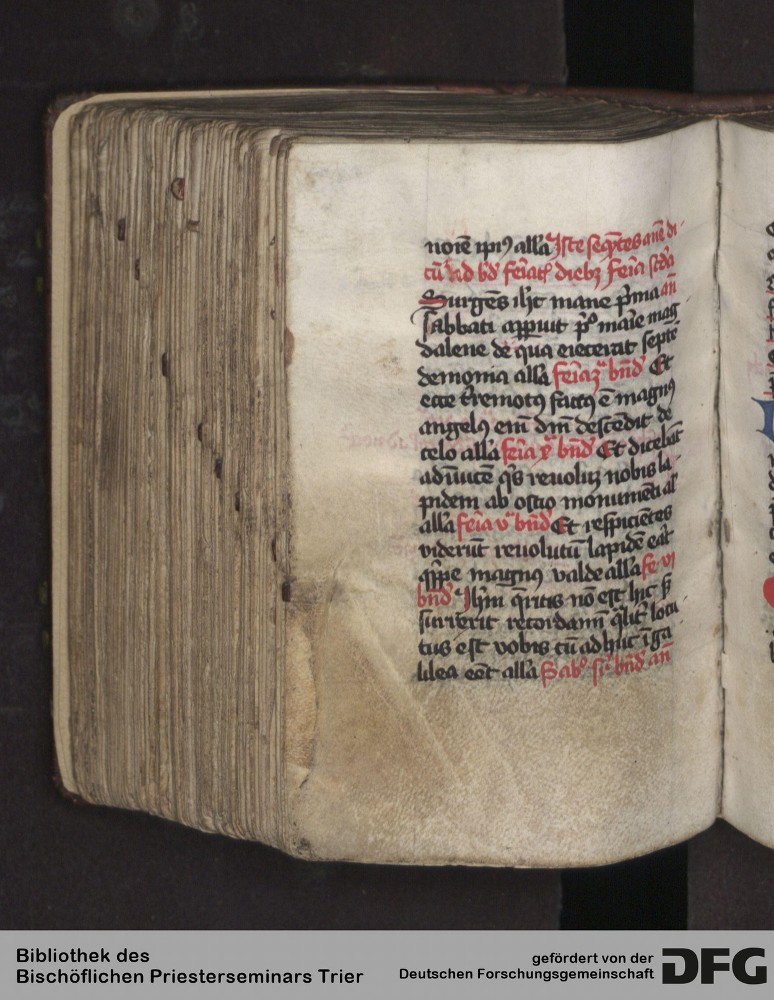 noīe ip̄i⁹ all'a Iste seq̄ntes ān̄e di
cūr ad bn̄d ferial' diebꝫ feria scd̄a
Surgens ih̄c mane p̄ma an̄
sabbati apparuit p̄º marie mag
dalene de qua eiecerat septē
demonia all'a feria 3ª bn̄d Et
ecce terremot⁹ fact⁹ ē magn⁹
angel⁹ em̄ dn̄i descēdit de
celo all'a feria bn̄d Et dicebāt
adinuicē q̄s reuoluꝫ nobis la
pidem ab ostio monumēti al'
all'a feria vª bn̄d Et respicientes
viderūt reuolutū lapidē erat
q̄ppe magn⁹ valde all'a fe vi
bn̄d Ih̄m q̄ritis nō est hic s̄
surrexit recordami q̄lit' locu
tus est vobis cū adhuc ī ga
lilea eēt all'a Sabº bn̄d an̄
Bibliothek des
Bischöflichen Priesterseminars Trier
gefördert von der
Deutschen Forschungsgemeinschaft
DFG